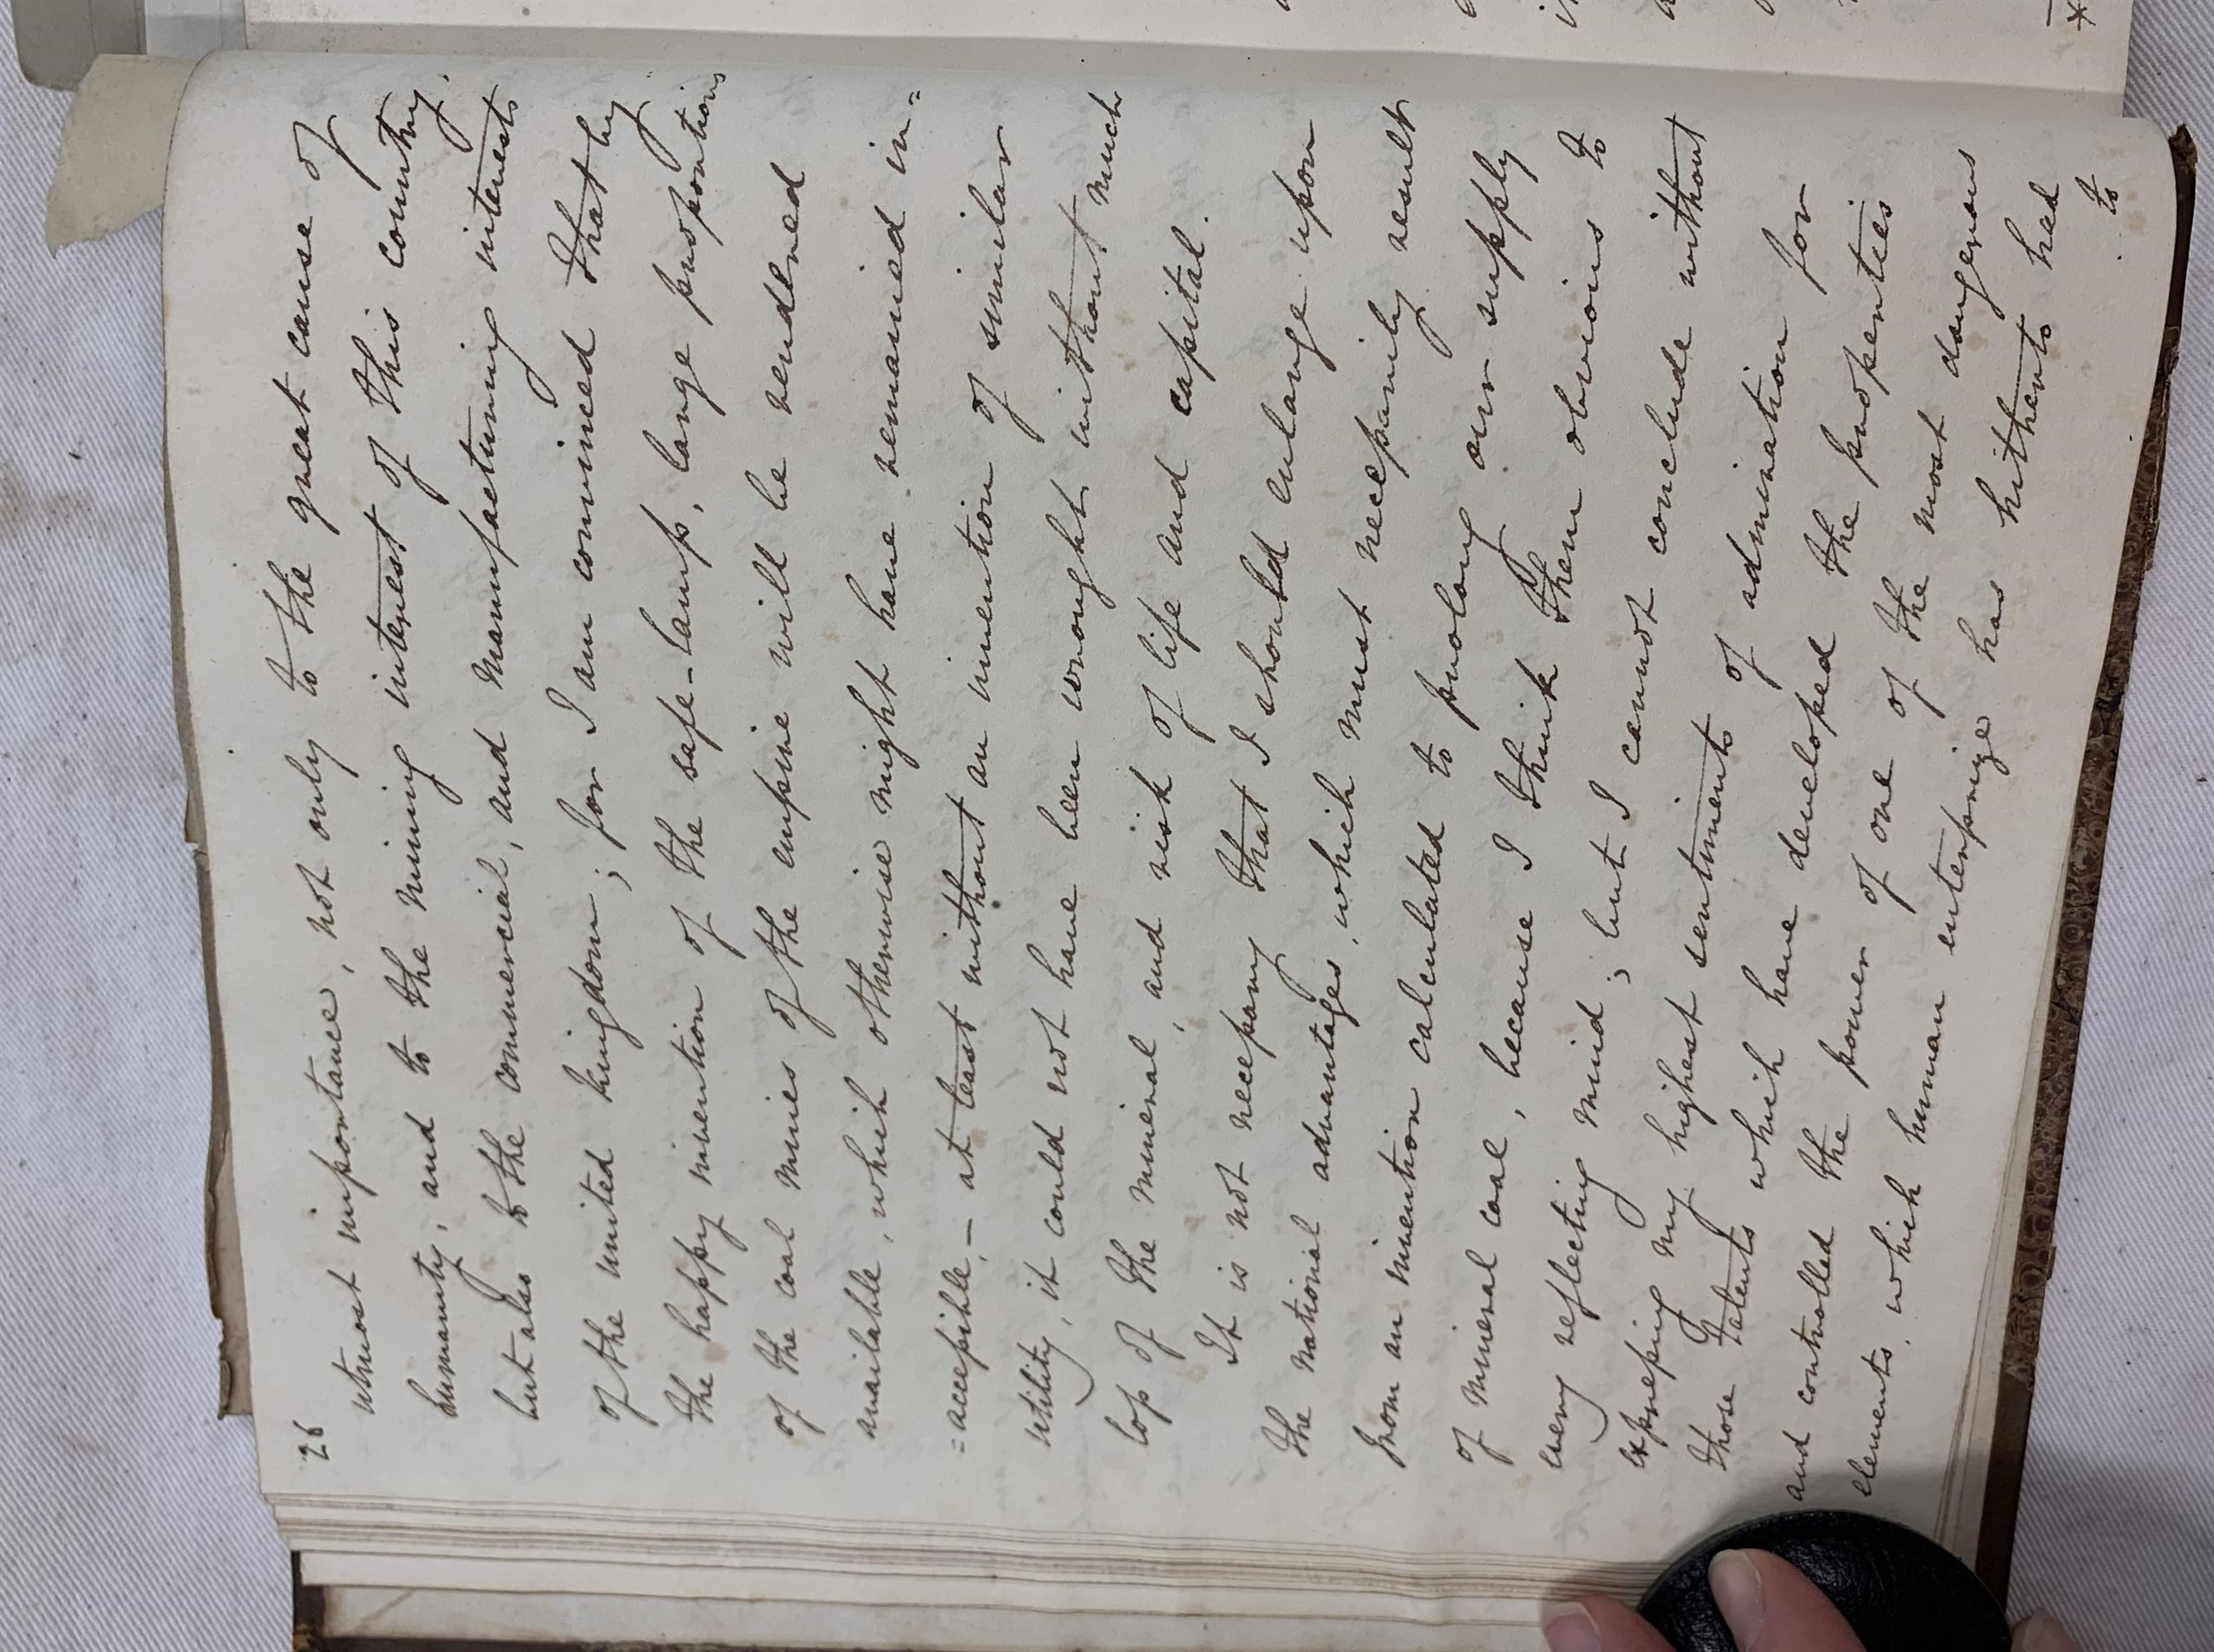 26
utmost importance, not only to the great cause of
humanity, and to the mining interest of this country,
but also to the commercial, and manufacturing interests
of the united kingdom; for I am convinced that by
the happy invention of the safe-lamp, large proportions
of the coal mines of the empire will be rendered
available, which otherwise might have remained in=
=accessible, – at least without an invention of similar
utility, it could not have been wrought without much
loss of the mineral, and risk of life and capital.
It is not necessary that I should enlarge upon
the national advantages, which must necessarily result
from an invention calculated to prolong our supply
of mineral coal, because I think them obvious to
every reflecting mind; but I cannot conclude without
expressing my highest sentiments of admiration for
those talents which have developed the properties
and controlled the power of one of the most dangerous
elements, which human enterprize has hitherto had
to